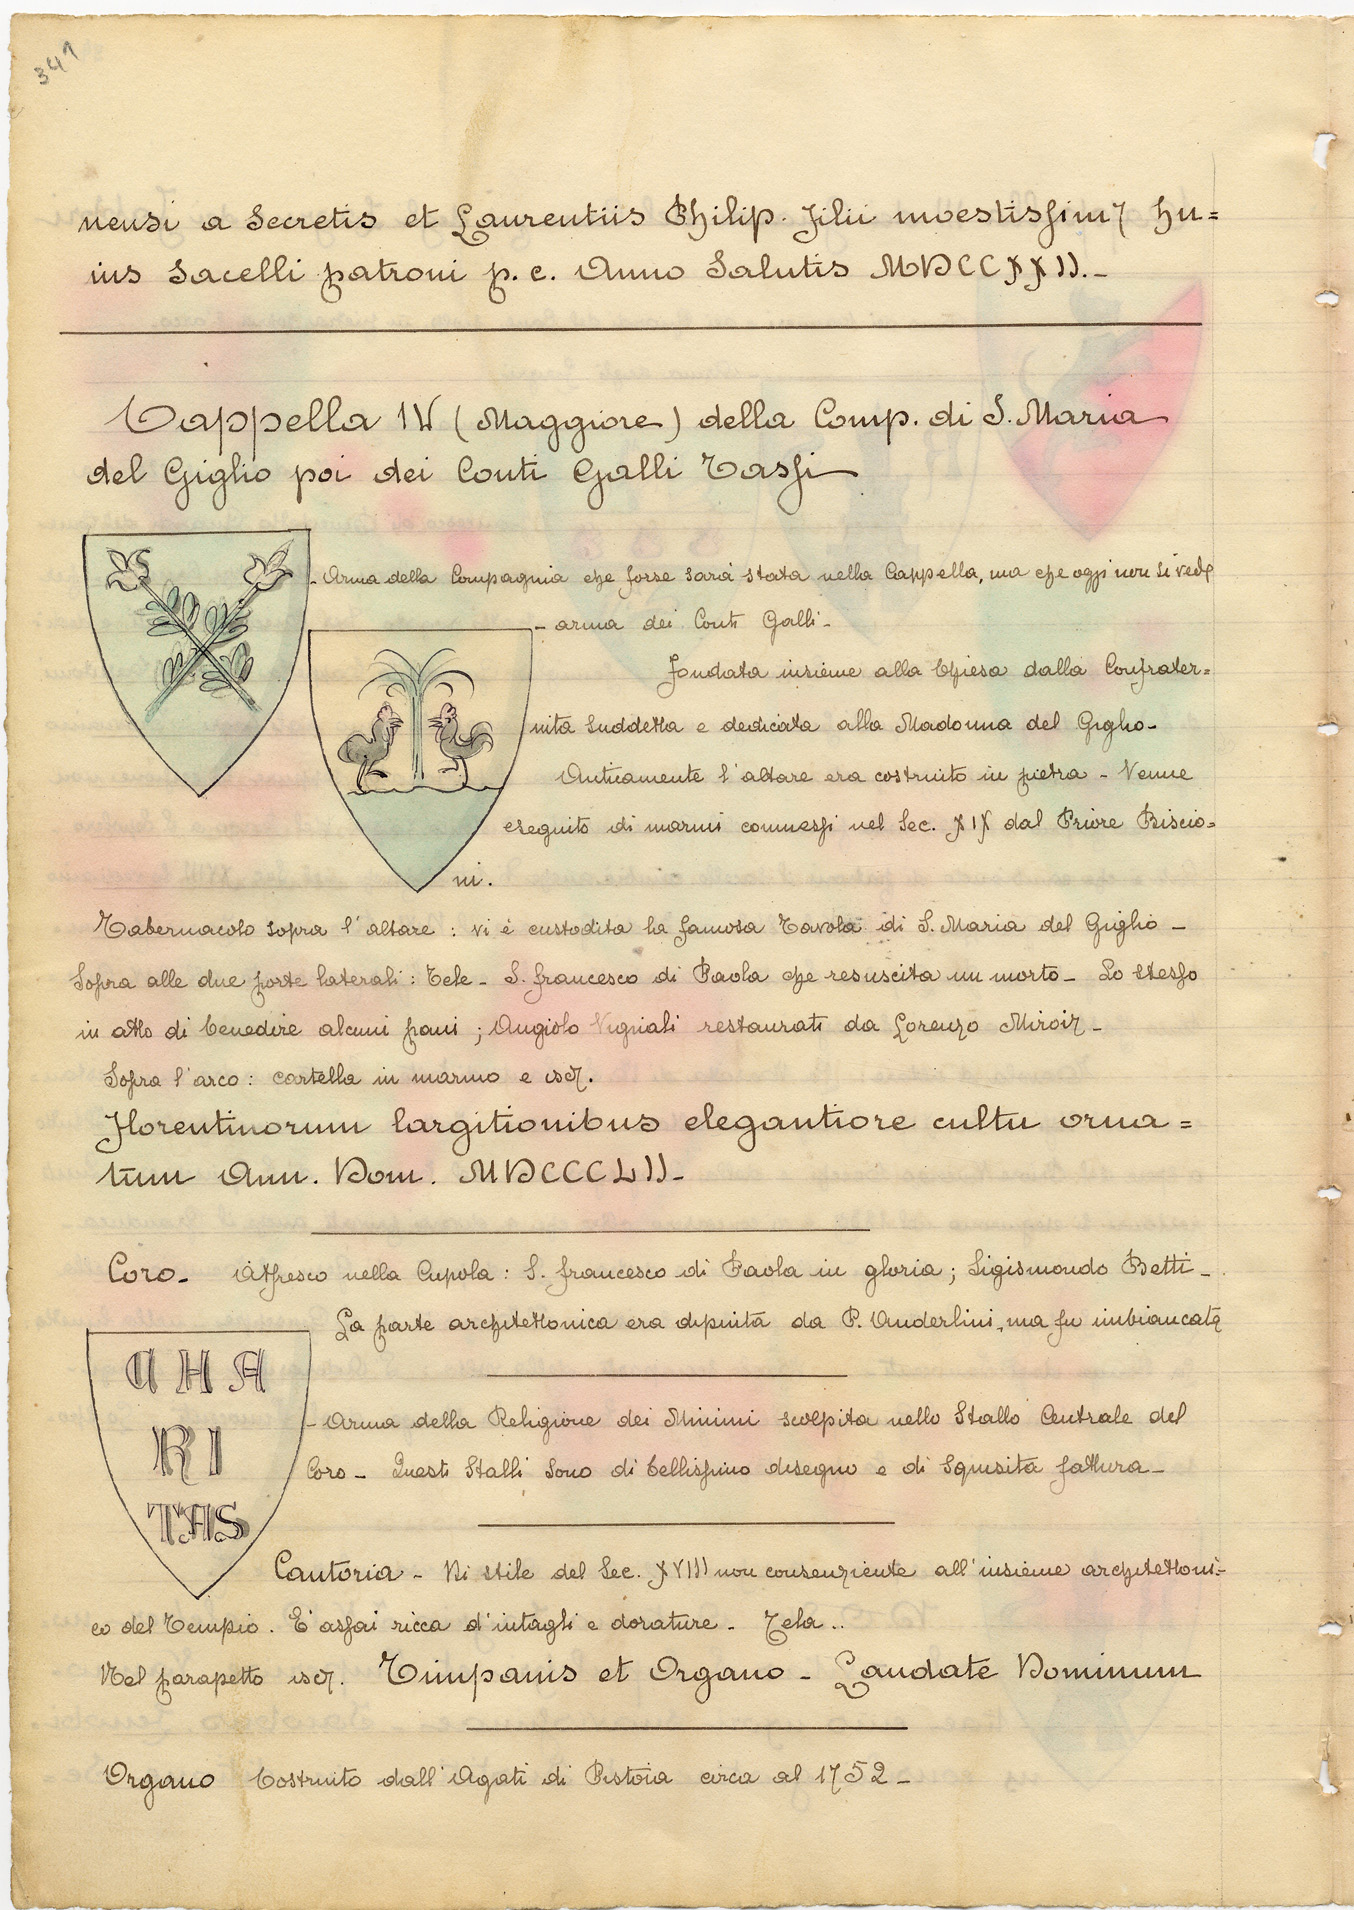 341
nensi a Secretis et Laurentiis Philip. Filii moestissimi hu=
ius Sacelli patroni p. c. Anno Salutis MDCCXXII.-
Cappella IV (Maggiore) della Comp. di S. Maria
del Giglio poi dei Conti Galli Tassi
- Arma della Compagnia che forse sarà stata nella Cappella, ma che oggi non si vede
- arma dei Conti Galli -
Fondata insieme alla Chiesa dalla Confrater=
nita suddetta e dedicata alla Madonna del Giglio -
Anticamente l'altare era costruito in pietra - Venne
eseguito di marmi commessi nel Sec. XIX dal Priore Biscio=
ni.
Tabernacolo sopra l'altare : vi è custodita la famosa Tavola di S. Maria del Giglio -
Sopra alle due porte laterali : Tele - S. Francesco di Paola che resuscita un morto - Lo stesso
in atto di benedire alcuni pani ; Angiolo Vignali restaurati da Lorenzo
Sopra l'arco : cartella in marmo e iscr.
Florentinorum largitionibus elegantiore cultu orna=
tum Ann. Dom. MDCCCLII -
Coro - Affresco nella Cupola : S. Francesco di Paola in gloria ; Sigismondo Betti -
La parte architettonica era dipinta da P. Anderlini, ma fu imbiancata
CHA
RI
TAS
- Arma della Religione dei Minimi scolpita nello Stallo Centrale del
Coro - Questi Stalli sono di bellissimo disegno e di squisita fattura -
Cantoria - Di stile del Sec. XVIII non consenziente all'insieme architettoni-
co del Tempio. E' assai ricca d'intagli e dorature - Tela ..
Nel parapetto iscr. Timpanis et Organo - Laudate Dominum
Organo Costruito dall'Agati di Pistoia circa al 1752 -